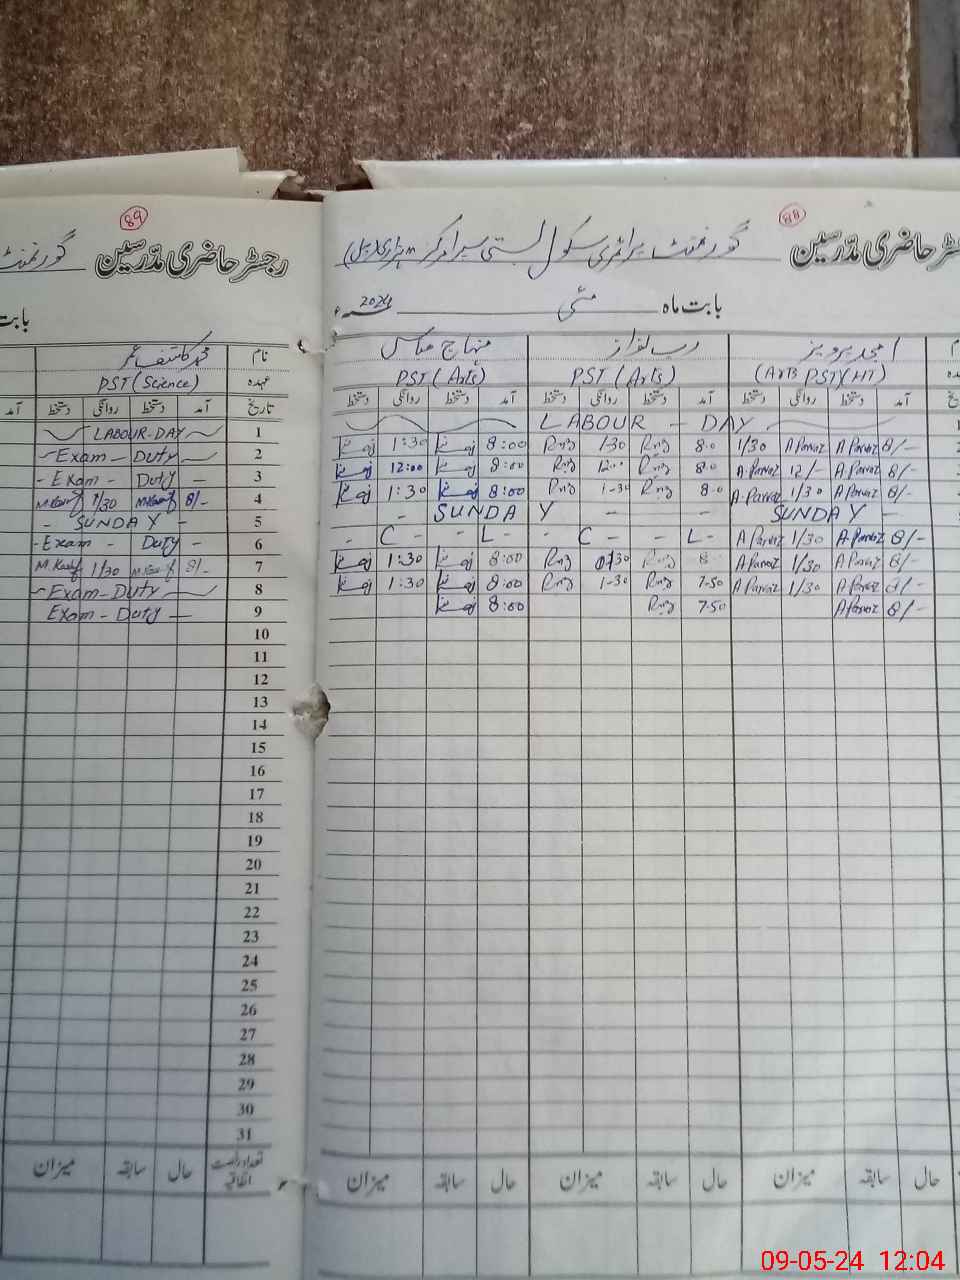 89
رجسٹر حاضری مدرسین گورنمنٹ
بابت
نام محمد کاشف عمر
عہدہ PST (Science)
تاریخ آمد دستخط روانگی دستخط آمد
1 LABOUR-DAY
2 - Exam - Duty -
3 - Exam - Duty -
4 8/- M.Kashif 1/30 M.Kashif
5 - SUNDAY -
6 - Exam - Duty -
7 8/- M.Kashif 1/30 M.Kashif
8 - Exam - Duty -
9 Exam - Duty -
10
11
12
13
14
15
16
17
18
19
20
21
22
23
24
25
26
27
28
29
30
31
تعداد رخصت اتفاقیہ حال سابقہ میزان
88
رجسٹر حاضری مدرسین گورنمنٹ پرائمری سکول بستی
بابت ماہ مئی 2024ء
امجد پرویز رب نواز منہاج عباس
(Arts PST (HT) PST (Arts) PST (Arts)
آمد دستخط روانگی دستخط آمد دستخط روانگی دستخط آمد دستخط روانگی دستخط
LABOUR - DAY
8/- A Parvaz A Parvaz 1/30 8.0 1.30 8:00 1:30
8/- A Parvaz 12/- A.Parvaz 8.0 12.. 8:00 12:00
8/- A Parvaz 1/30 A.Parvaz 8.0 1-30 8:00 1:30
- SUNDAY - - SUNDAY -
8/- A.Parvaz 1/30 A Parvaz - C - L - - C - L -
8/- A Parvaz 1/30 A.Parvaz 8 1:30 8:00 1:30
8/- A Parvaz 1/30 A Parvaz 7.50 1-30 8:00 1:30
8/- A Parvaz 7.50 8:00
حال سابقہ میزان حال سابقہ میزان حال سابقہ میزان
09-05-24 12:04